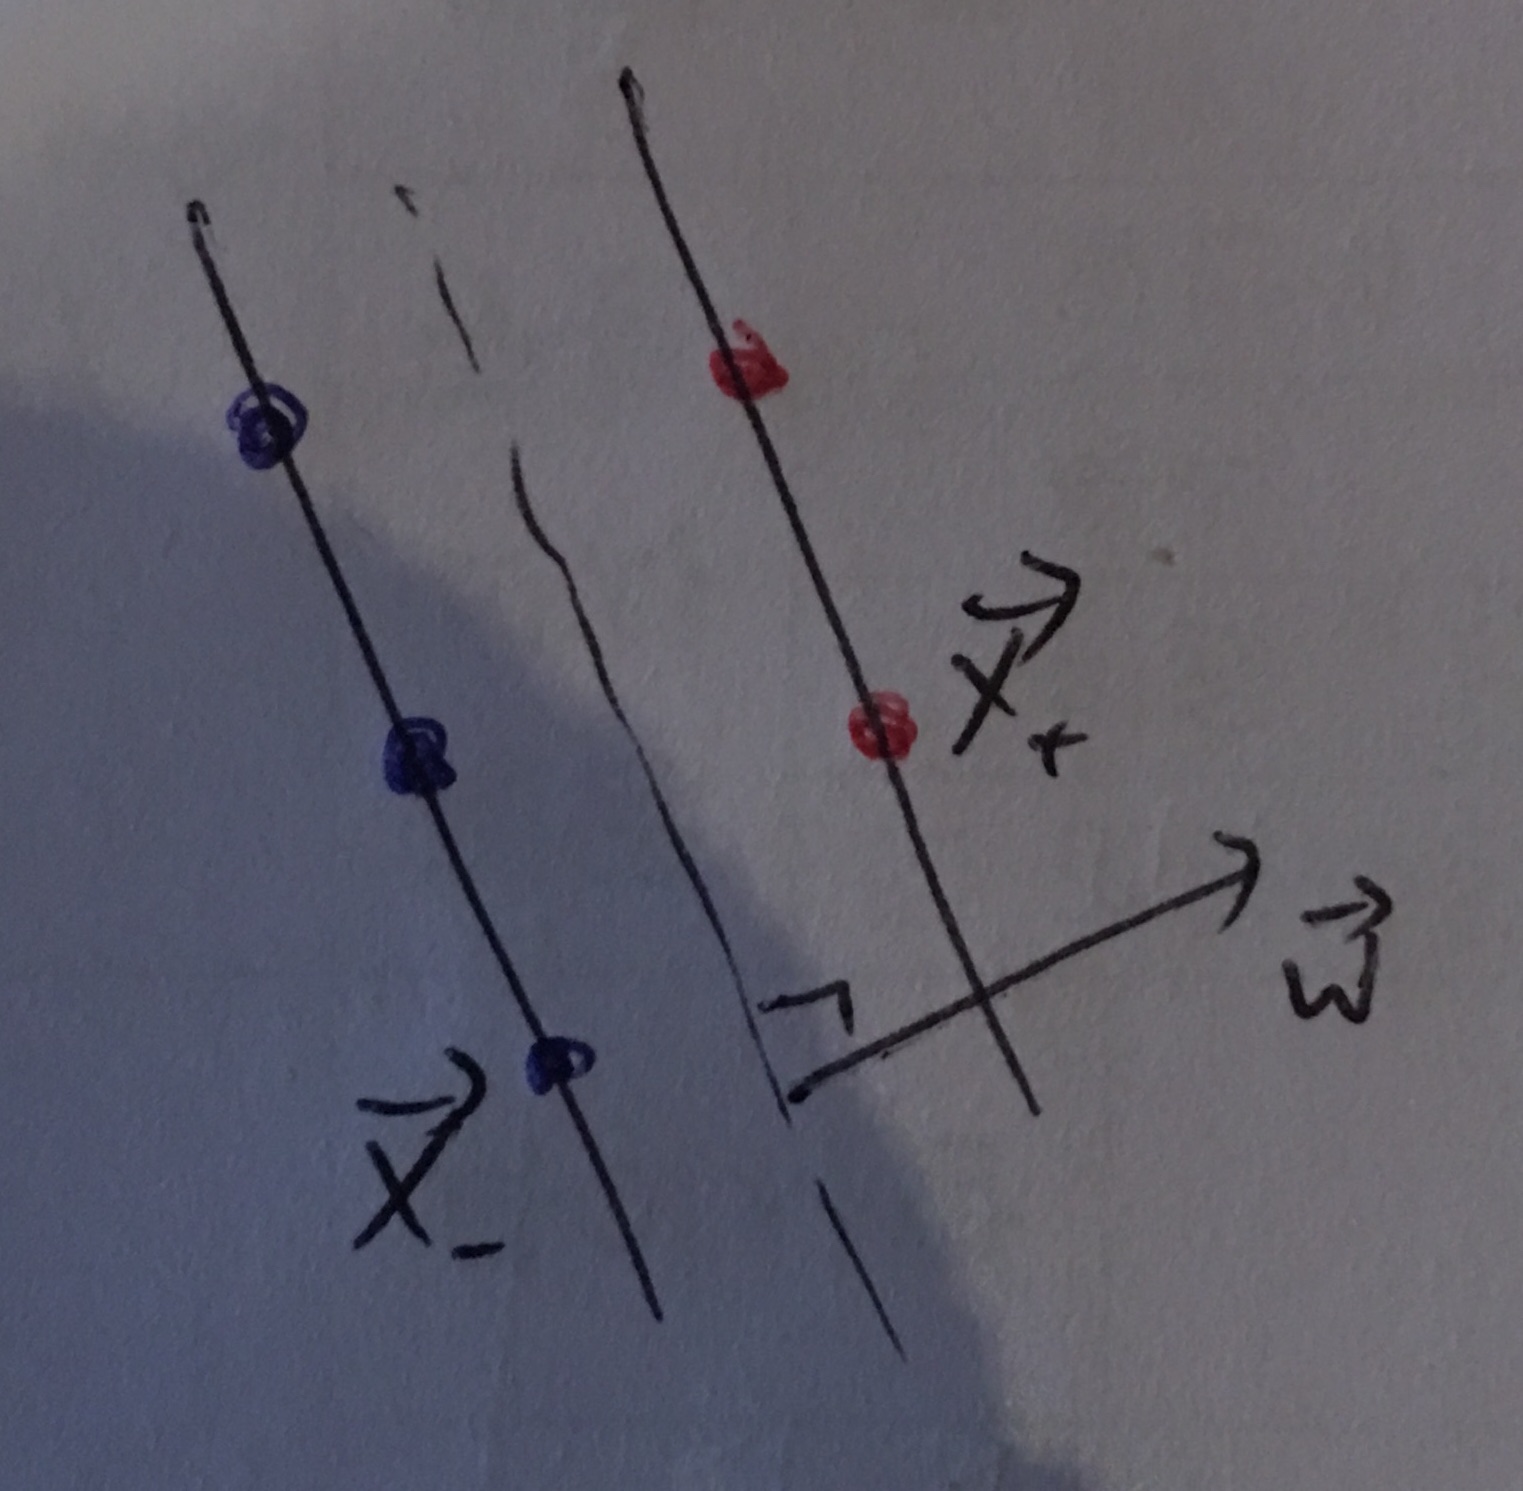 X⃗₊
w⃗
X⃗₋